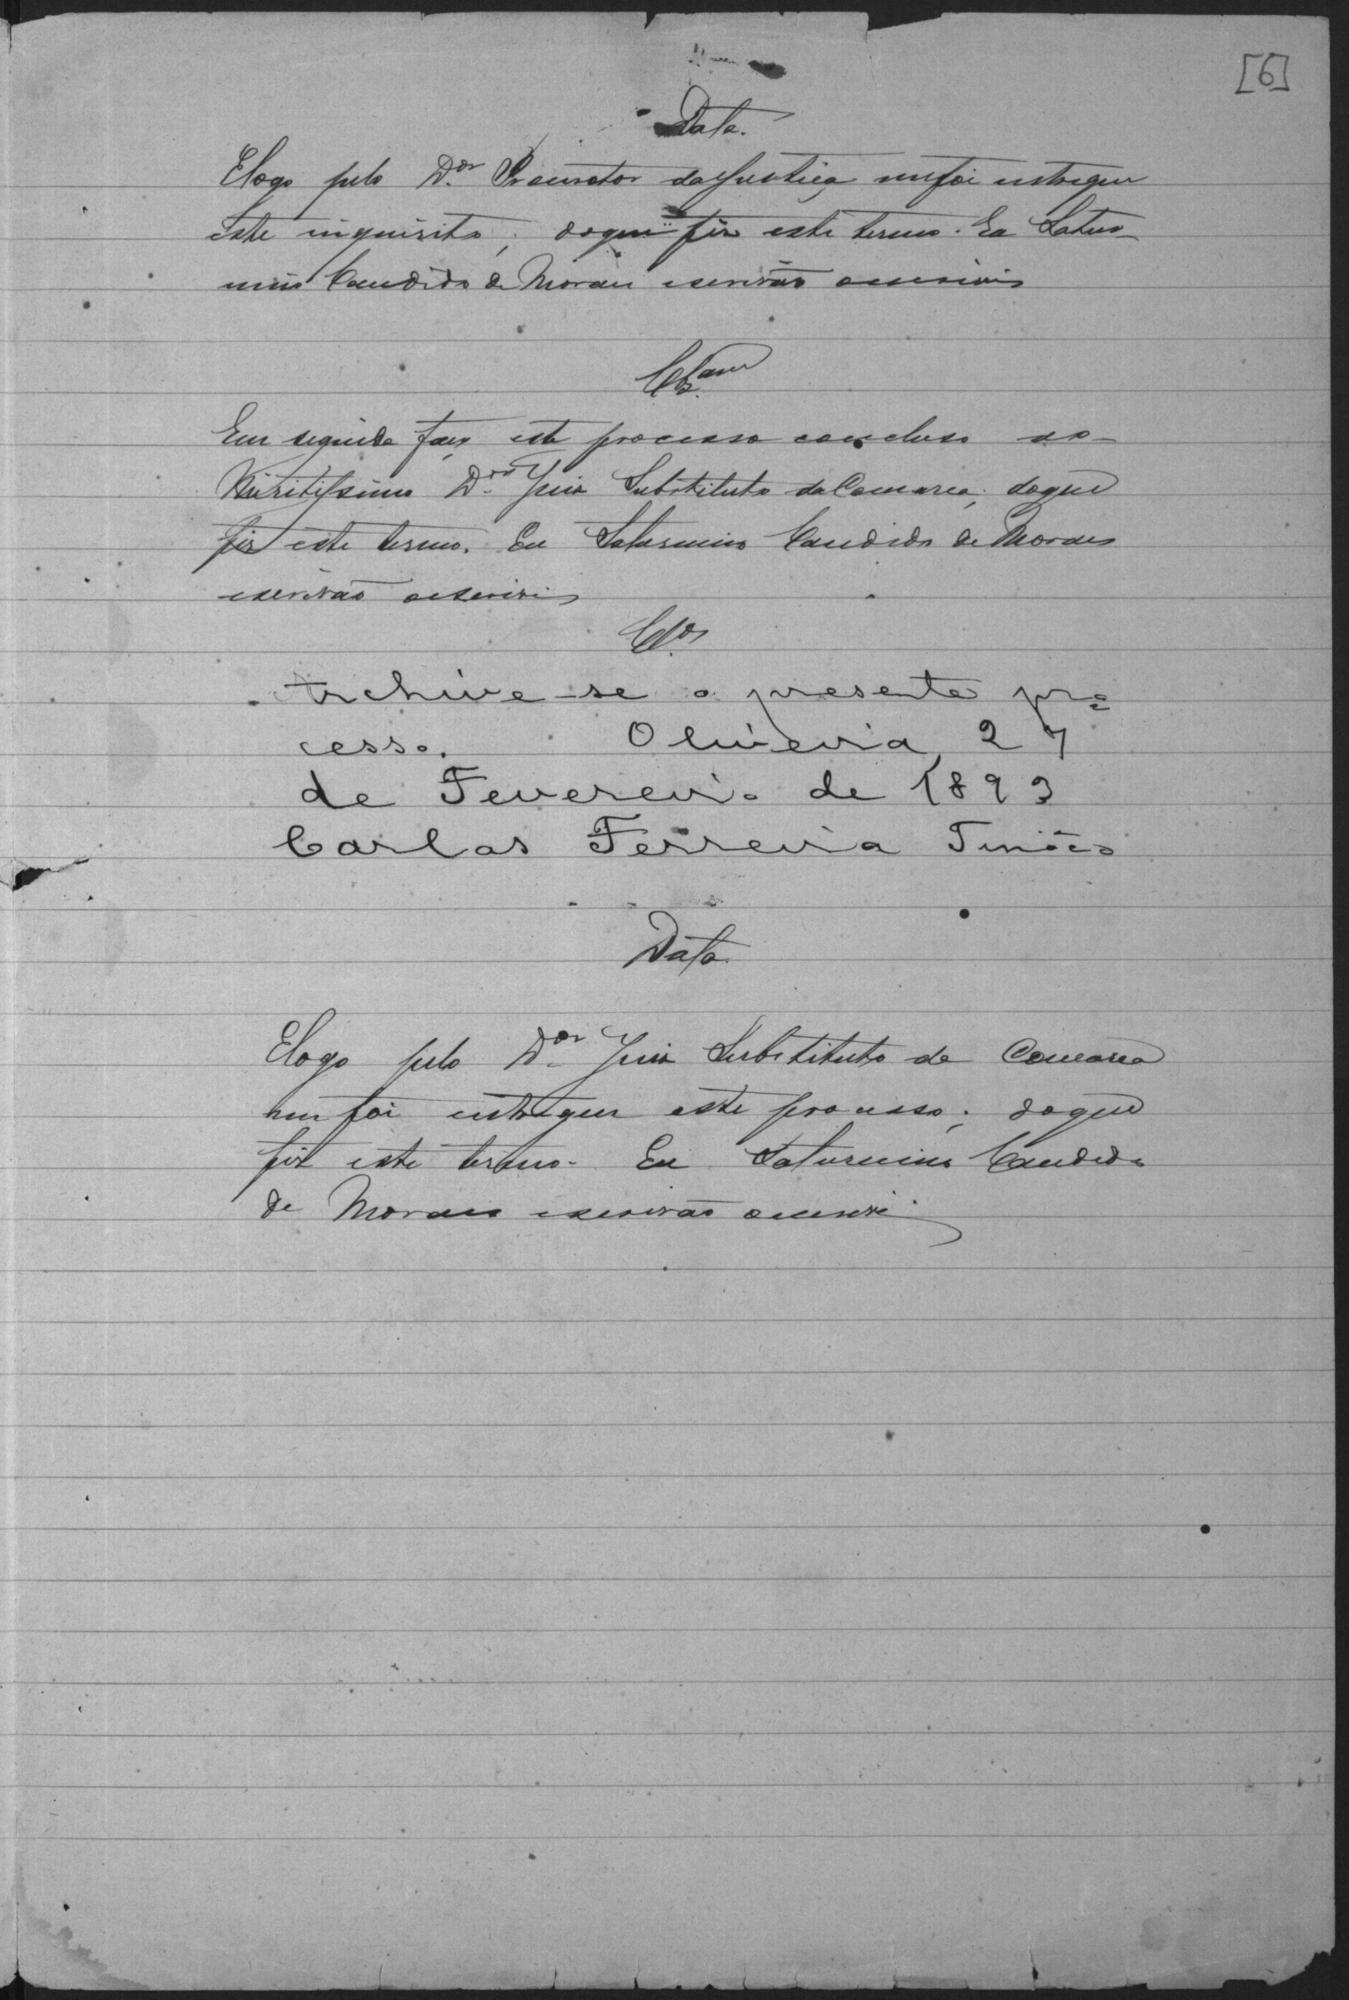 [6]
Data.
E logo pelo D.or Promotor da Justiça me foi entregue
este inquerito; do que fiz este termo. Eu Satur-
nino Candido de Moraes escrivão o escrivi
Cls.am
Em seguida faço este processo concluso ao
Miritissimo D.or Juiz Substituto da Comarca; do que
fiz este termo. Eu Saturnino Candido de Moraes
escrivão o escrivi
Cls.
Archive-se o presente pro
cesso. Oliveira, 27
de Fevereiro de 1893
Carlos Ferreira
Data
E logo pelo D.or Juiz Substituto da Comarca
me foi entregue este processo; do que
fiz este termo. Eu Saturnino Candido
de Moraes escrivão o escrivi